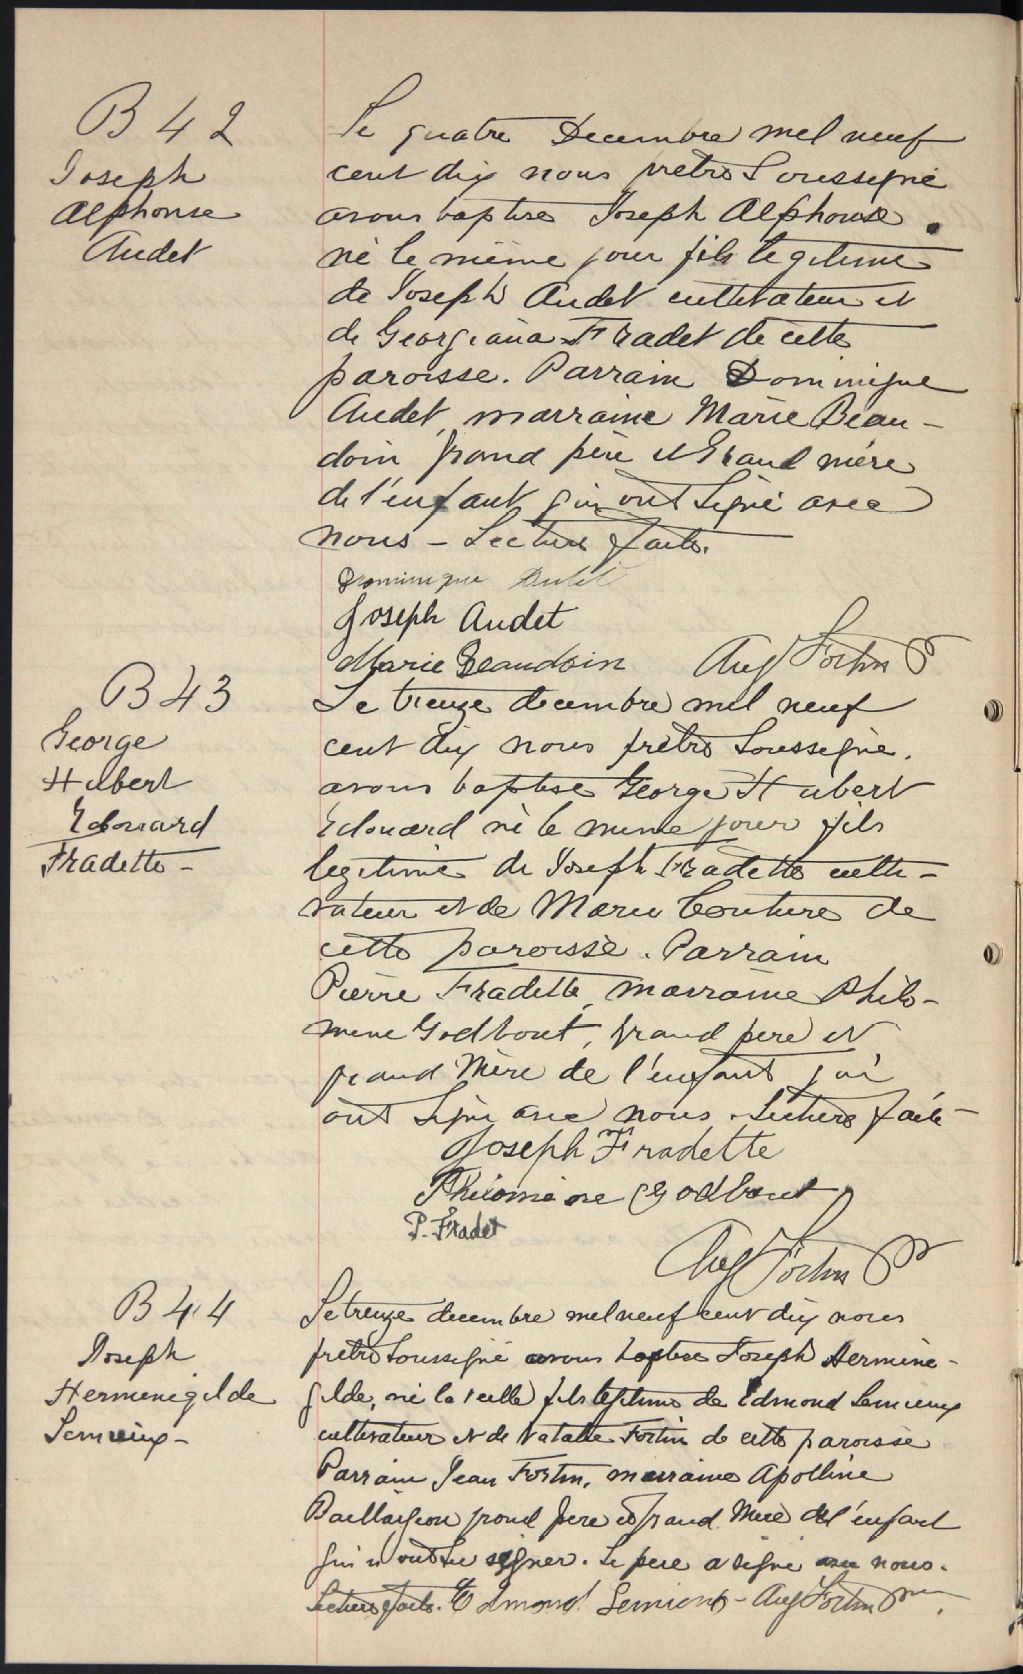 B 42
Joseph
Alphonse
Audet
Le quatre Decembre mil neuf
cent dix nous prêtre Soussigné
avons baptise Joseph Alphonse
né le même jour fils legitime
de Joseph Audet cultivateur et
de Georgiana Fradet de cette
paroisse. Parrain Dominique
Audet, marraine Marie Beau-
doin grand père et Grand mère
de l'enfant qui ont Signé avec
nous - Lecture faite.
Dominique Audet
Joseph Audet
Marie Beaudoin Aug Fortin Ptr
B 43
George
Hubert
Edouard
Fradette -
Le treize decembre mil neuf
cent dix nous prêtre Soussigné.
avons baptise George Hubert
Edouard né le meme jour fils
legitime de Joseph Fradette culti-
vateur et de Marie Couture de
cette paroisse. Parrain
Pierre Fradette, marraine Philo-
mene Godbout, grand pere et
grand Mère de l'enfant qui
ont Signé avec nous. Lecture faite -
Joseph Fradette
Philomène Godbout
P. Fradet
Aug Fortin Ptr
B 44
Joseph
Hermenégilde
Lemieux -
Le treize decembre mil neuf cent dix nous
prêtre Soussigné avons baptise Joseph Herméné-
gilde, né la veille fils legitime de Edmond Lemieux
cultivateur et de Natalie Fortin de cette paroisse
Parrain Jean Fortin, marraine Apolline
Baillargeon grand pere et grand Mere de l'enfant
qui n'ont su signer. Le pere a signé avec nous.
Lecture faite. Edmond Lemieux - Aug Fortin Ptr.